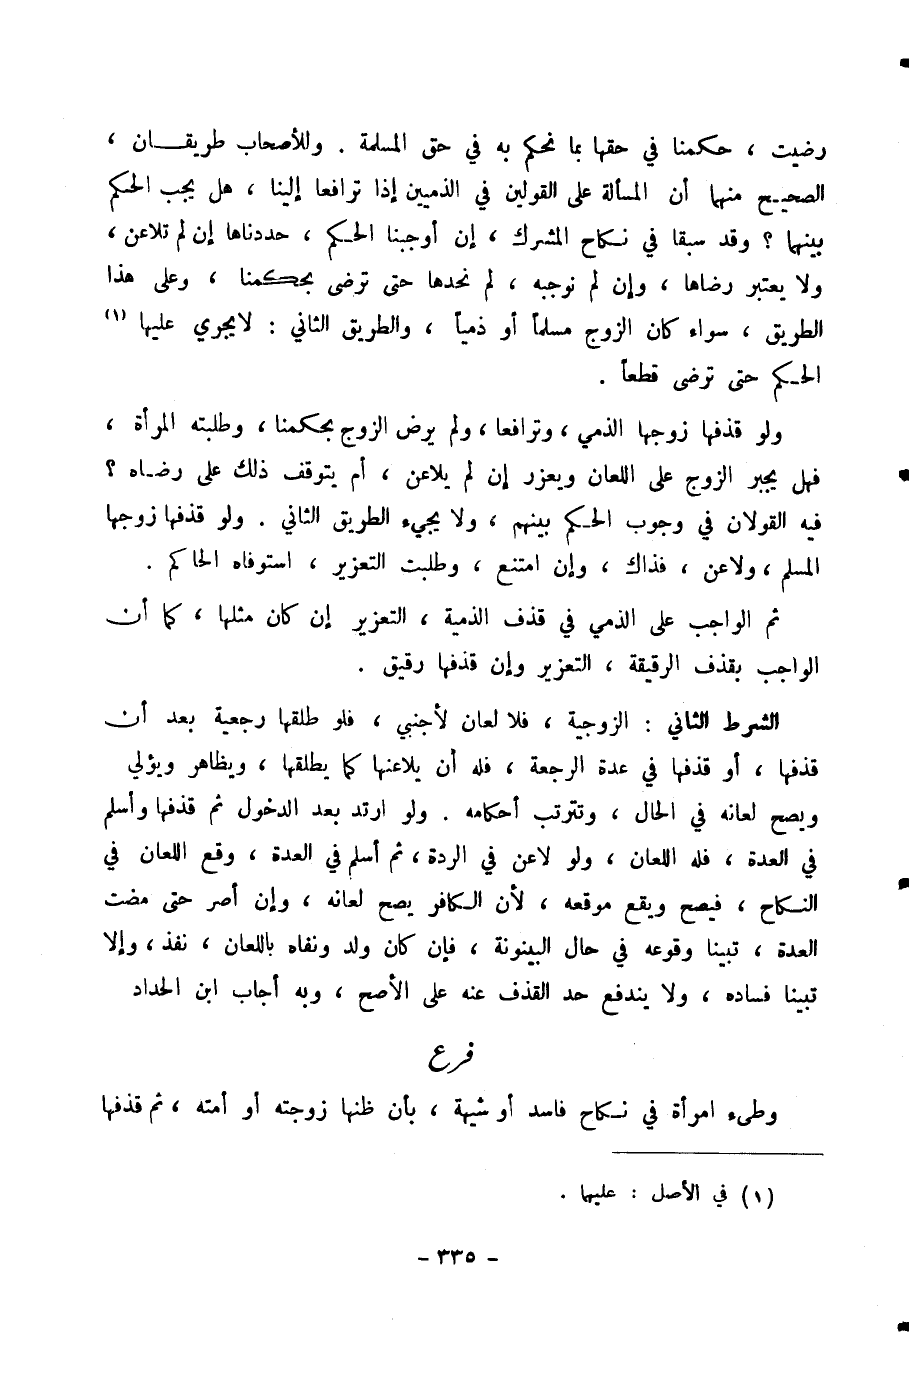 رضيت ، حكمنا في حقها بما نحكم به في حق المسلمة . وللأصحاب طريقـــان ،
الصحيح منها أن المسألة على القولين في الذميين إذا ترافعا إلينا ، هل يجب الحكم
بينها ؟ وقد سبقا في نكاح المشرك ، إن أوجبنا الحكم ، حددناها إن لم تلاعن ،
ولا يعتبر رضاها ، وإن لم نوجبه ، لم نحدها حتى ترضى بحكمنا ، وعلى هذا
الطريق ، سواء كان الزوج مسلماً أو ذمياً ، والطريق الثاني : لايجري عليها (١)
الحكم حتى ترضى قطعاً .
ولو قذفها زوجها الذمي ، وترافعا ، ولم يرض الزوج بحكمنا ، وطلبته المرأة ،
فهل يجبر الزوج على اللعان ويعزر إن لم يلاعن ، أم يتوقف ذلك على رضاه ؟
فيه القولان في وجوب الحكم بينهم ، ولا يجيء الطريق الثاني . ولو قذفها زوجها
المسلم ، ولاعن ، فذاك ، وإن امتنع ، وطلبت التعزير ، استوفاه الحاكم .
ثم الواجب على الذمي في قذف الذمية ، التعزير إن كان مثلها ، كما أن
الواجب بقذف الرقيقة ، التعزير وإن قذفها رقيق .
الشرط الثاني : الزوجية ، فلا لعان لأجنبي ، فلو طلقها رجعية بعد أن
قذفها ، أو قذفها في عدة الرجعة ، فله أن يلاعنها كما يطلقها ، ويظاهر ويؤلي
ويصح لعانه في الحال ، وتترتب أحكامه . ولو ارتد بعد الدخول ثم قذفها وأسلم
في العدة ، فله اللعان ، ولو لاعن في الردة ، ثم أسلم في العدة ، وقع اللعان في
النكاح ، فيصح ويقع موقعه ، لأن الكافر يصح لعانه ، وإن أصر حتى مضت
العدة ، تبينا وقوعه في حال البينونة ، فإن كان ولد ونفاه باللعان ، نفذ ، وإلا
تبينا فساده ، ولا يندفع حد القذف عنه على الأصح ، وبه أجاب ابن الحداد
فرع
وطىء امرأة في نكاح فاسد أو شبهة ، بأن ظنها زوجته أو أمته ، ثم قذفها
(١) في الأصل : عليها .
- ٣٣٥ -